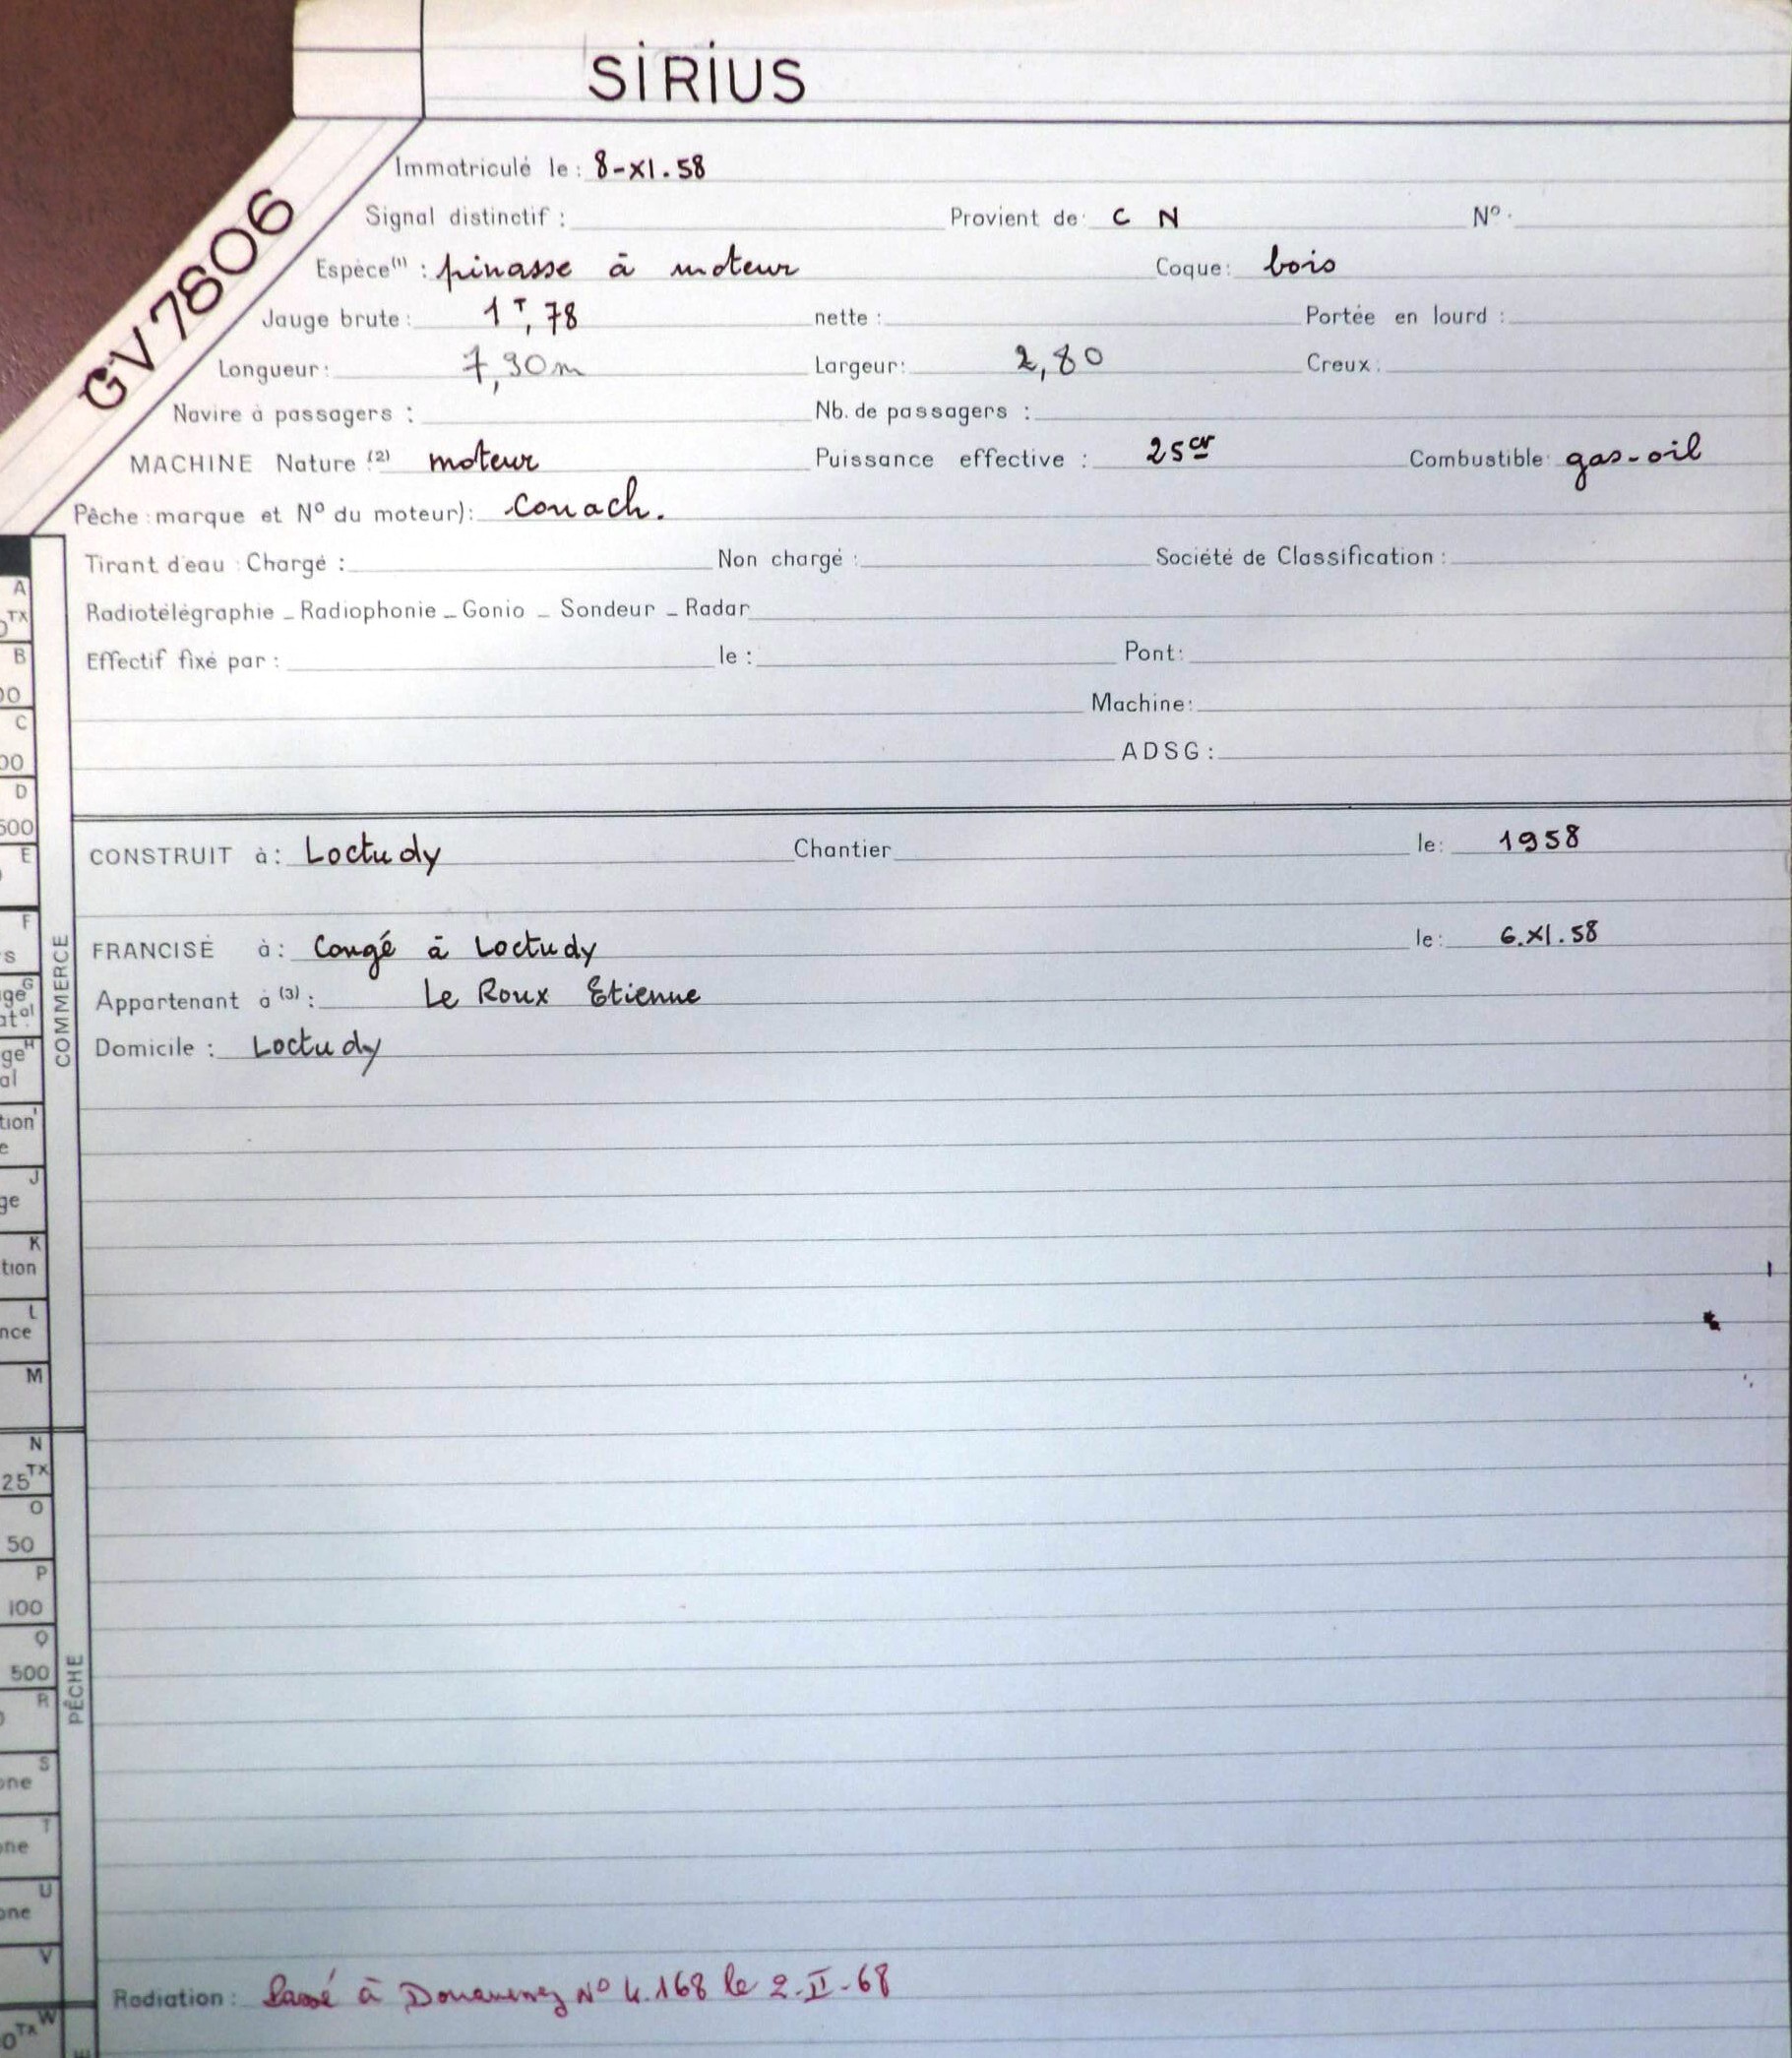 SIRIUS
GV7806
Immatriculé le : 8-XI.58
Signal distinctif : Provient de : C N N° .
Espèce(1) : pinasse à moteur Coque : bois
Jauge brute : 1T,78 nette : Portée en lourd :
Longueur : 7,30m Largeur : 2,80 Creux :
Navire à passagers : Nb. de passagers :
MACHINE Nature (2) moteur Puissance effective : 25cv Combustible : gas-oil
Pêche : marque et N° du moteur) : Couach.
Tirant d'eau : Chargé : Non chargé : Société de Classification :
Radiotélégraphie _ Radiophonie _ Gonio _ Sondeur _ Radar
Effectif fixé par : le : Pont :
Machine :
ADSG :
CONSTRUIT à : Loctudy Chantier le : 1958
FRANCISÉ à : Congé à Loctudy le : 6.XI.58
Appartenant à (3) : Le Roux Etienne
Domicile : Loctudy
Radiation : Passé à Douarnenez N° 4.168 le 2-II-68
COMMERCE
PÊCHE
A
TX
B
00
C
00
D
500
E
F
s
G
ge
atal
H
ge
al
I
tion
e
J
ge
K
tion
L
nce
M
N
25TX
O
50
P
100
Q
500
R
S
one
T
one
U
one
V
W
0TX